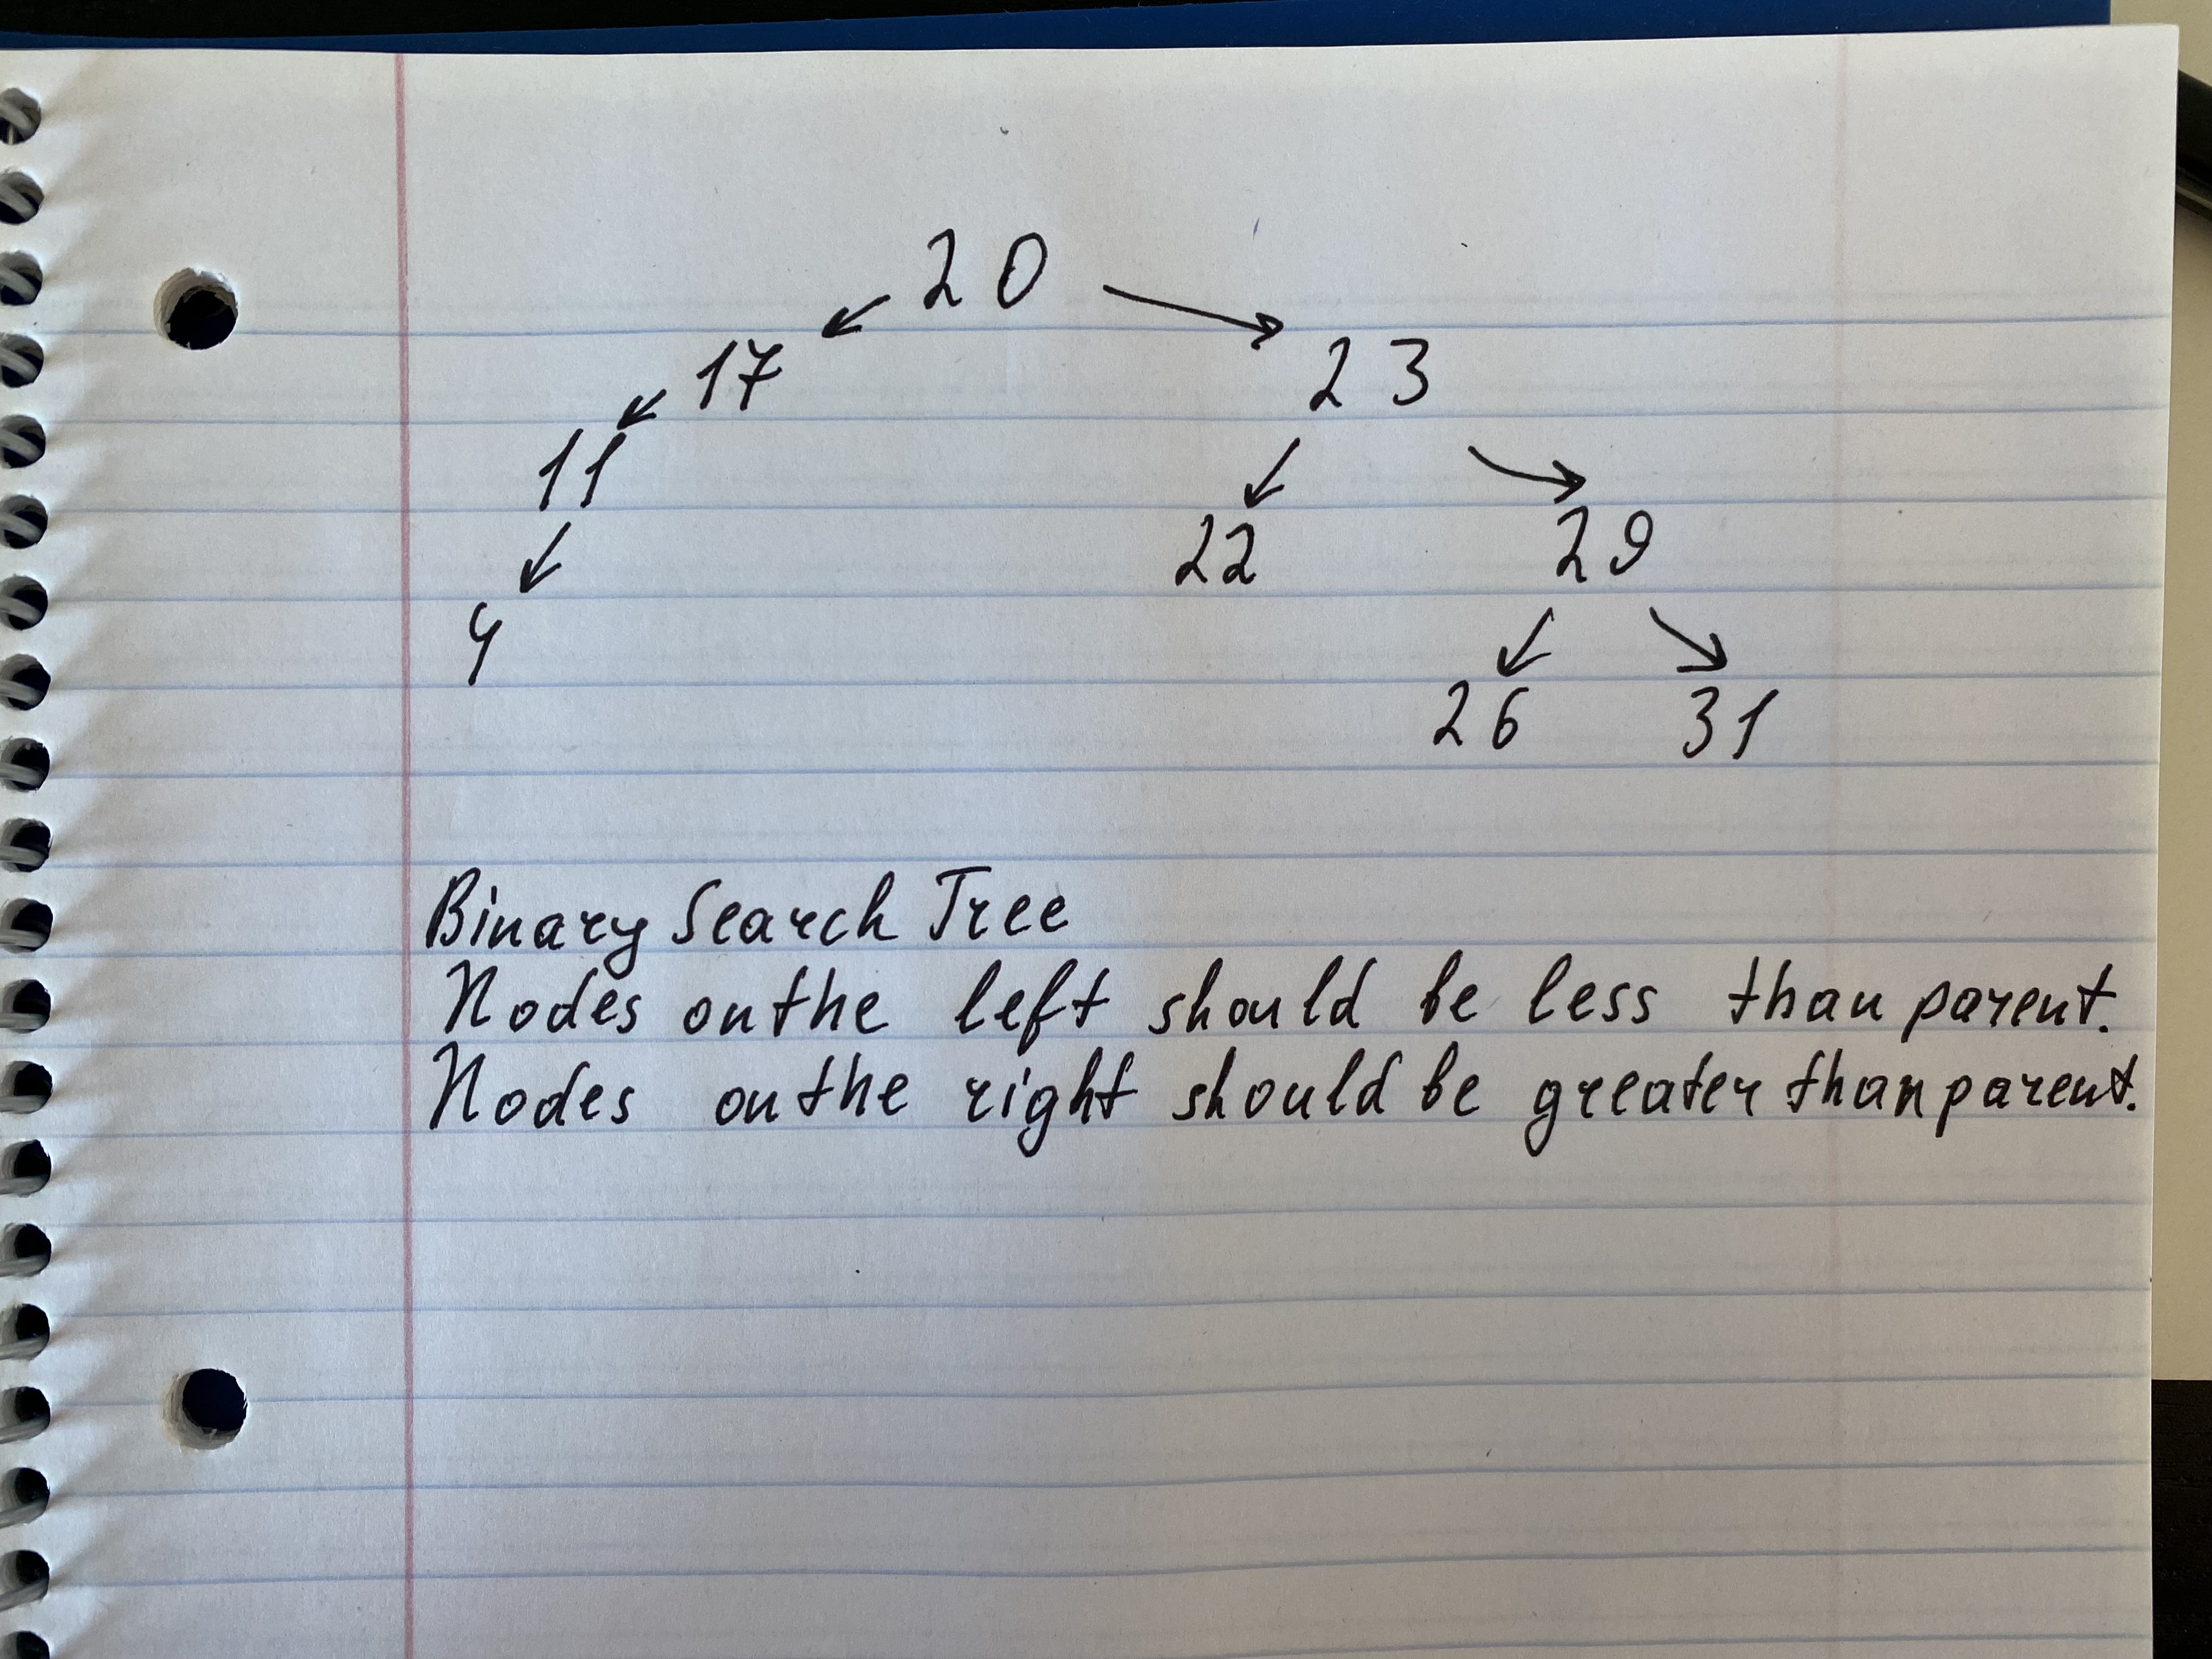 20
17 23
11
22 29
4
26 31
Binary Search Tree
Nodes on the left should be less than parent.
Nodes on the right should be greater than parent.